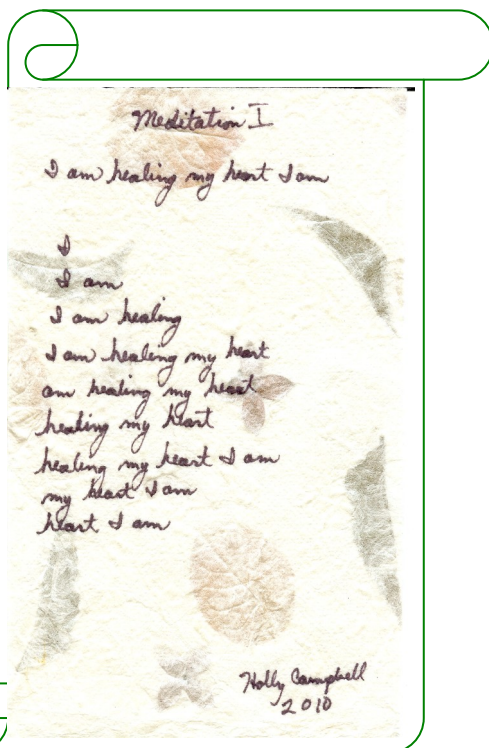 Meditation I
I am healing my heart I am
I
I am
I am healing
I am healing my heart
am healing my heart
healing my heart
healing my heart I am
my heart I am
heart I am
Holly Campbell
2010